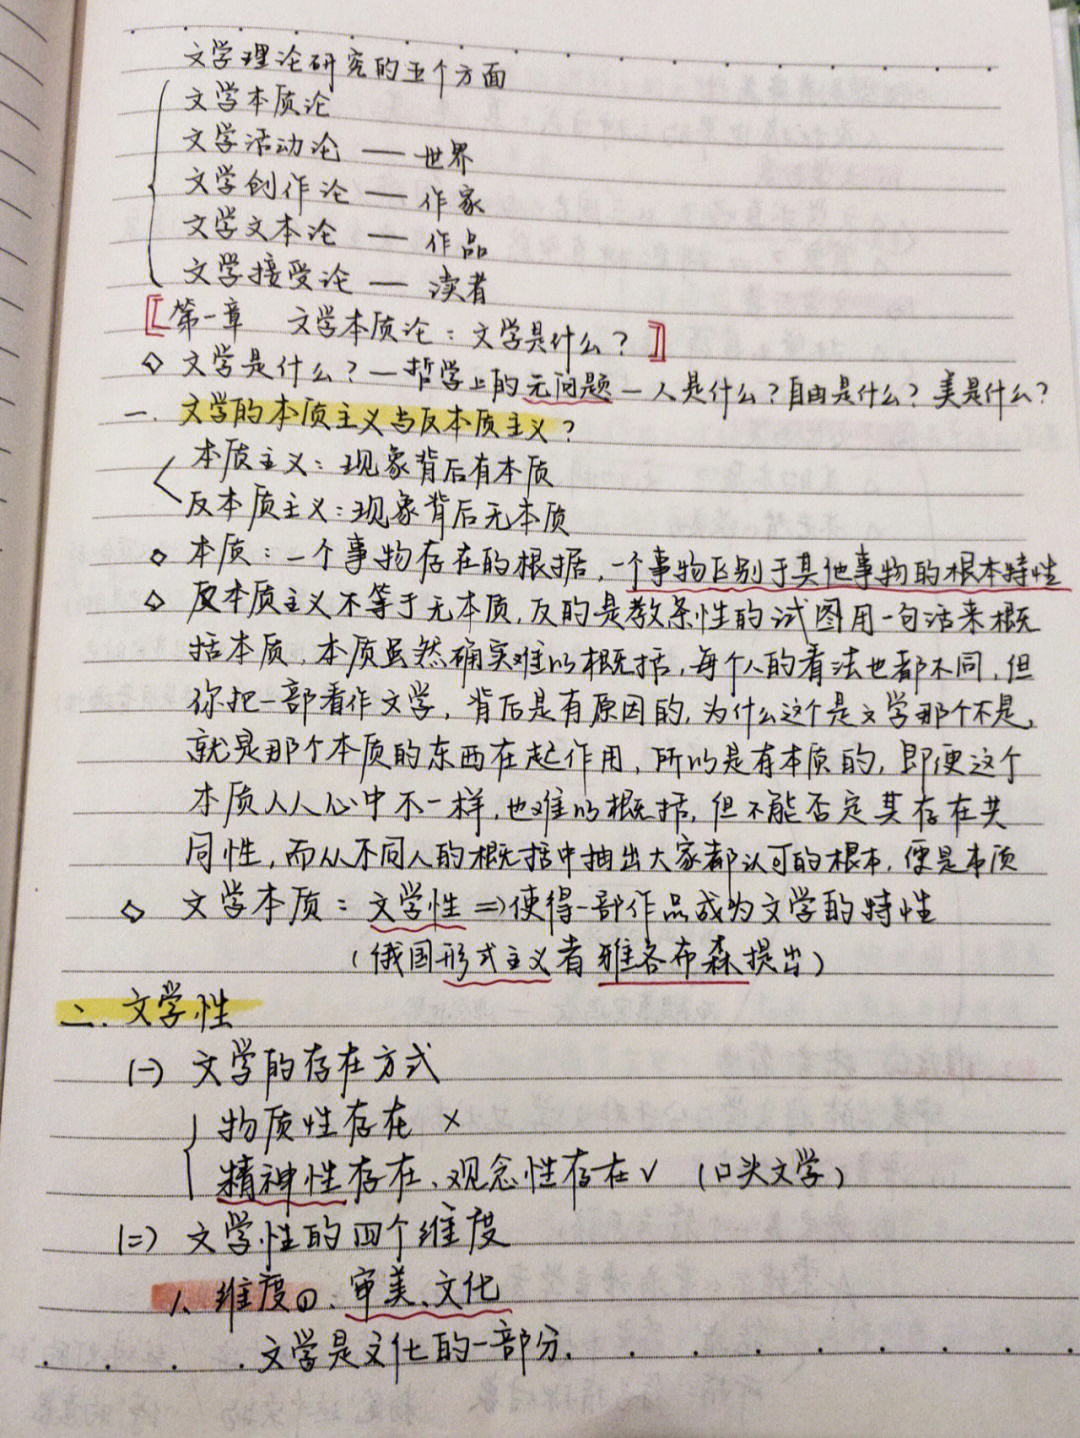 文学理论研究的五个方面
文学本质论
文学活动论 — 世界
文学创作论 — 作家
文学文本论 — 作品
文学接受论 — 读者
【第一章 文学本质论：文学是什么？】
◇ 文学是什么？—哲学上的元问题 — 人是什么？自由是什么？美是什么？
一. 文学的本质主义与反本质主义？
本质主义：现象背后有本质
反本质主义：现象背后无本质
◇ 本质：一个事物存在的根据，一个事物区别于其他事物的根本特性
◇ 反本质主义不等于无本质，反的是教条性的试图用一句话来概
括本质，本质虽然确实难以概括，每个人的看法也都不同，但
你把一部看作文学，背后是有原因的，为什么这个是文学那个不是，
就是那个本质的东西在起作用，所以是有本质的，即便这个
本质人人心中不一样，也难以概括，但不能否定其存在共
同性，而从不同人的概括中抽出大家都认可的根本，便是本质
◇ 文学本质：文学性 ⇒ 使得一部作品成为文学的特性
（俄国形式主义者雅各布森提出）
二. 文学性
(一) 文学的存在方式
物质性存在 ×
精神性存在、观念性存在 √ （口头文学）
(二) 文学性的四个维度
1. 维度①、审美、文化
文学是文化的一部分.